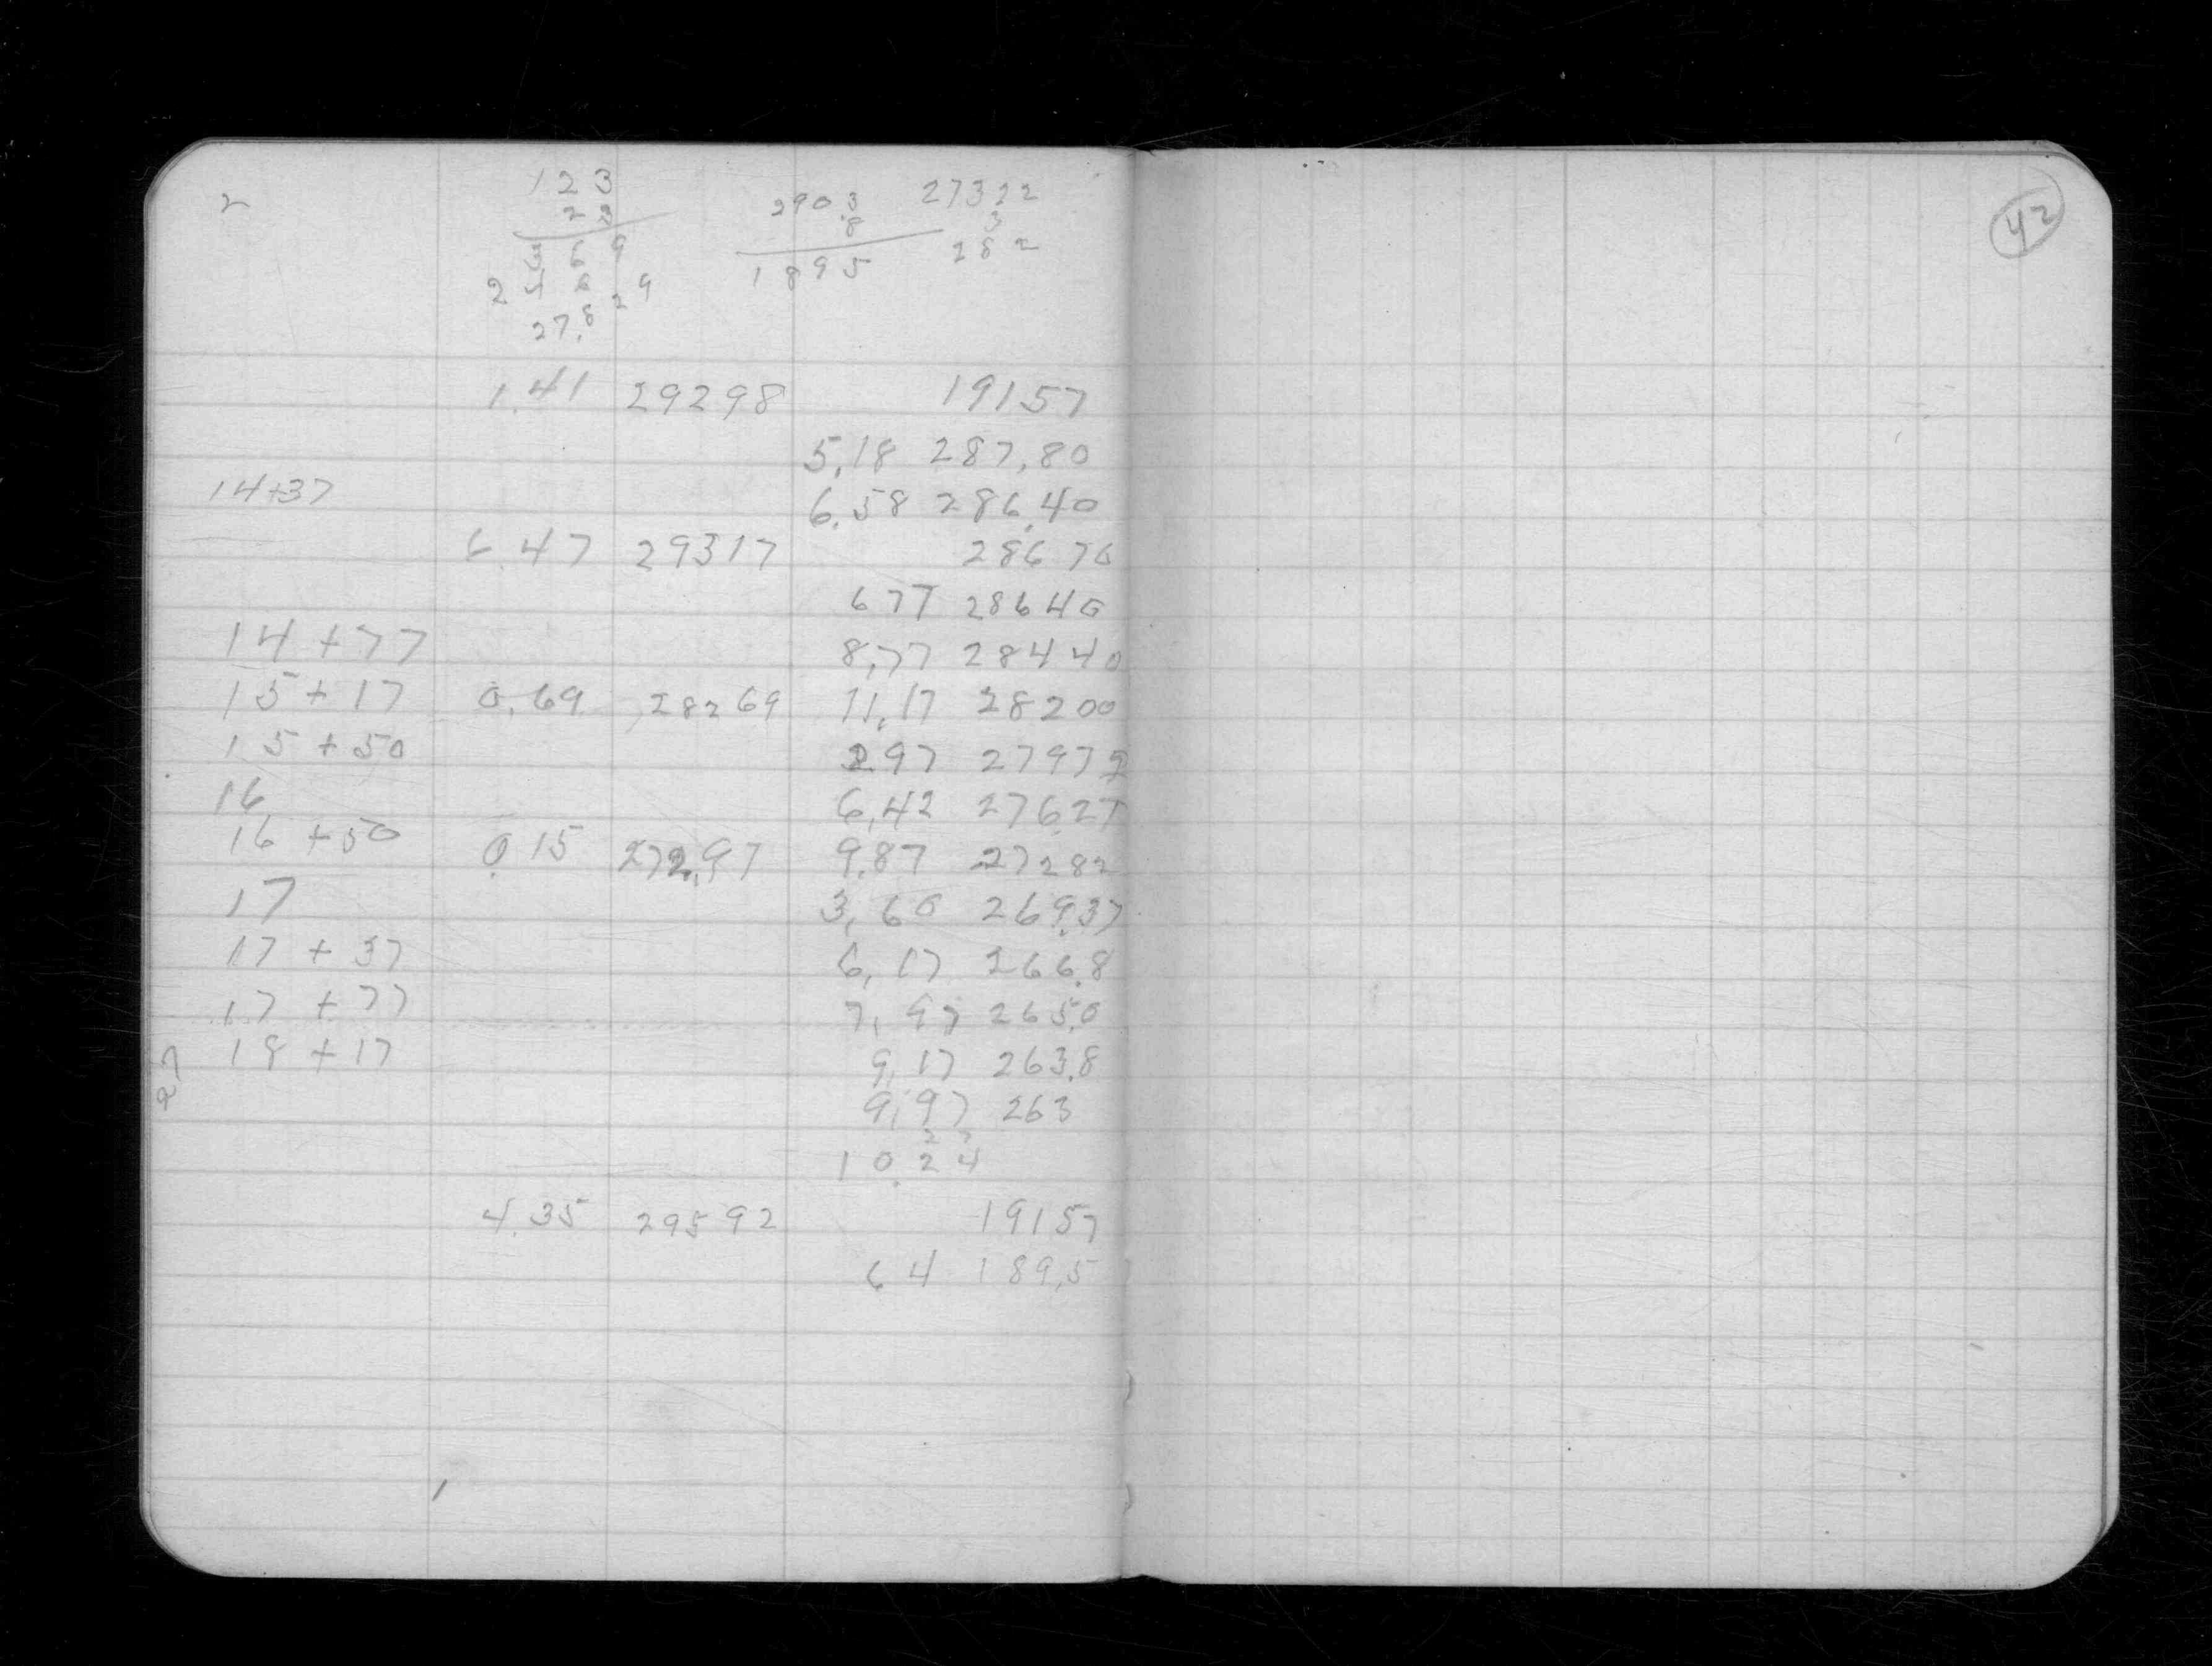 2
123
23
369
246
2829
27.8
290 3
.8
1895
27322
3
282
42
1.41 29298 19157
5.18 287.80
14+37
6.58 286.40
6.47 29317 28670
677 28640
14+77
8.77 28440
15+17 0.69 28269 11.17 28200
15+50
297 27972
16
6.42 27627
16+50 0.15 272.97 9.87 27282
17
3.60 269.37
17+37
6.17 266.8
17+77
7.97 265.0
18+17
9.17 263.8
27
9.97 263
10.24
4.35 29592 19157
64 189.5